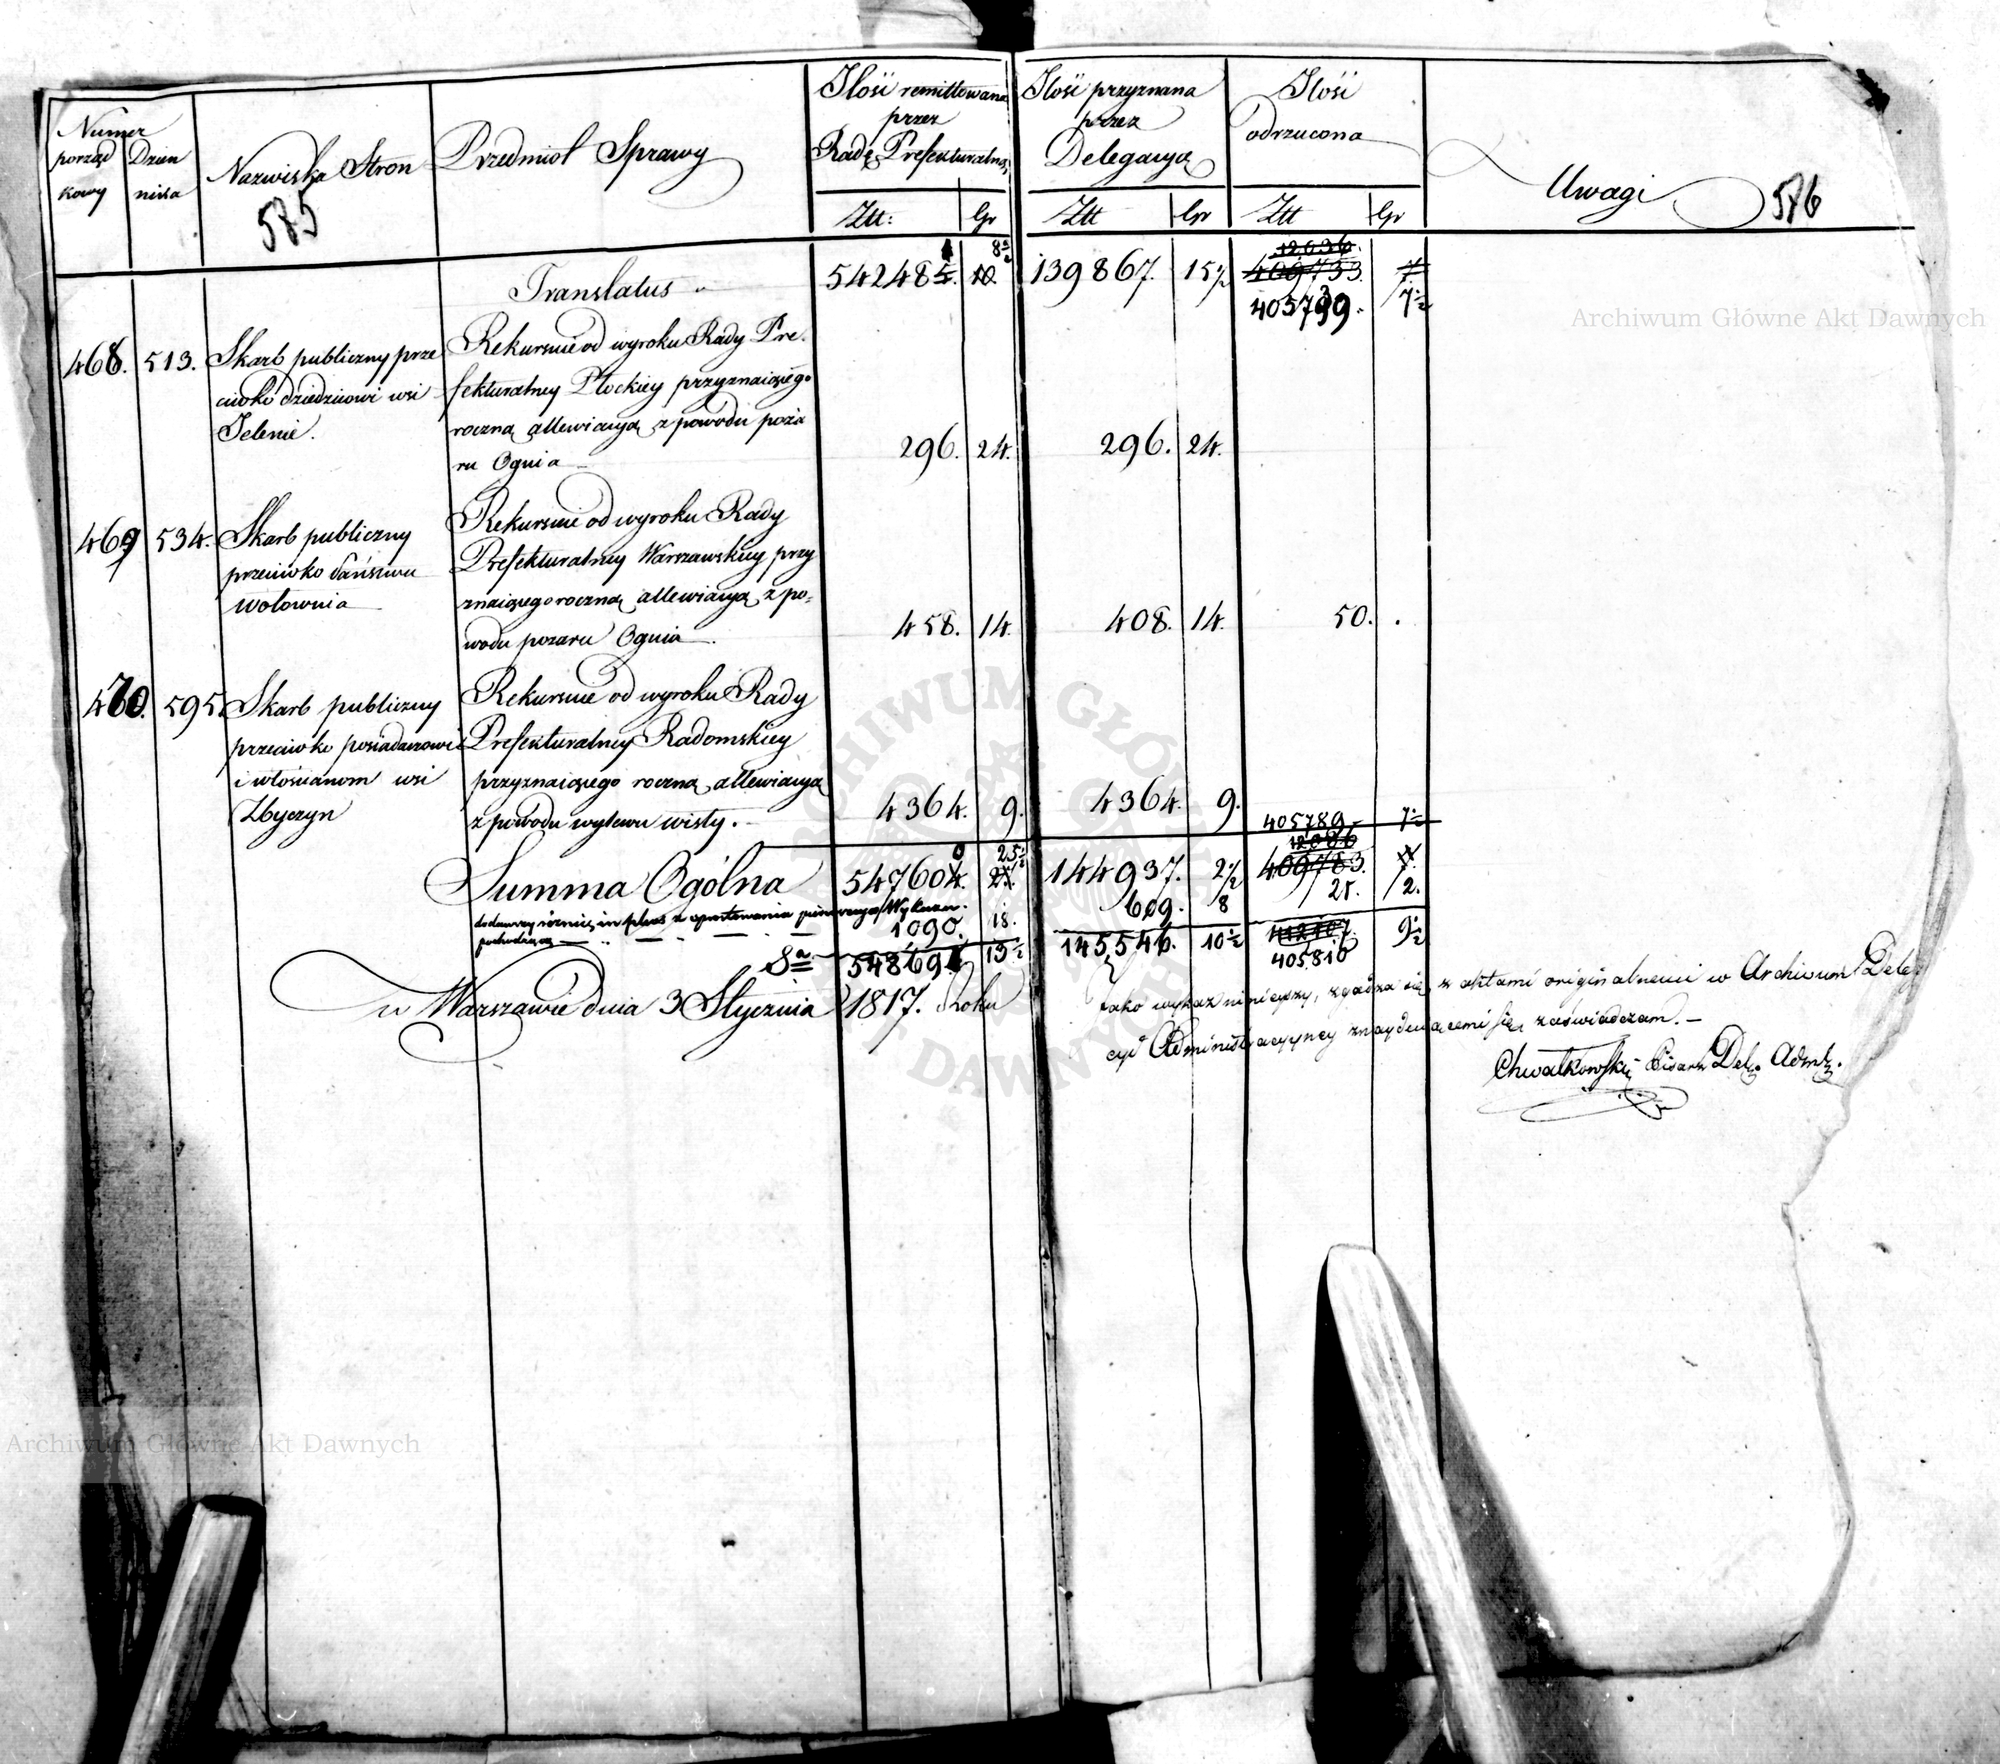 Numer
porząd
kowy
Dzien
nika
Nazwiska Stron
585
Przedmiot Sprawy
Ilość remittowana
przez
Radę Prefekturalną
Ilość przyznana
przez
Delegacyą
Ilość
odrzucona
Uwagi
586
Złt: Gr Złt Gr Złt Gr
Translatus 542485. 10. 139867. 15½ 409733. 7
12036.
405739. 7½
468. 513. Skarb publiczny prze
ciwko dziedzicowi wsi
Jelenie.
Rekursuie od wyroku Rady Pre
fekturalney Płockiey przyznaiącego
roczną allewiacyą z powodu poża
ru Ognia 296. 24. 296. 24.
469 534. Skarb publiczny
przeciwko Państwu
Wołownia
Rekursuie od wyroku Rady
Prefekturalney Warszawskiey przy
znaiącego roczną allewiacyą z po=
wodu pożaru Ognia 458. 14. 408. 14. 50. .
470. 595. Skarb publiczny
przeciwko posiadaczowi
i włościanom wsi
Zbyczyn
Rekursuie od wyroku Rady
Prefekturalney Radomskiey
przyznaiącego roczną allewiacyą
z powodu wylewu wisły. 4364. 9. 4364. 9.
405789 7½
12086
Summa Ogólna 547604. 144937. 2½ 409783. 7.
dodawszy różnicę in plus z sprostowania pierwszego Wykazu
pochodzącą 1090. 18. 609. 8 21. 2.
Sa 548691 13½ 145546. 10½ 405810 9½
w Warszawie dnia 3 Stycznia 1817. Roku
Jako wykaz ninieyszy, zgadza się z aktami originalnemi w Archiwum Dele
cyi Administracyyney znayduiącemi się zaświadczam.
Chwatkowski Pisarz Del. Adm.
Archiwum Główne Akt Dawnych
Archiwum Główne Akt Dawnych
ARCHIWUM GŁÓWNE AKT DAWNYCH